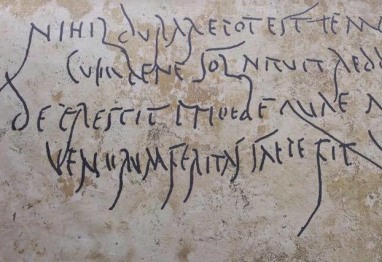 NIHIL DURARE POTEST TEM
CUM BENE SOL NITUIT REDD
DECRESCIT PHOEBE QUAE M
VENERUM FERITAS SAEPE FIT